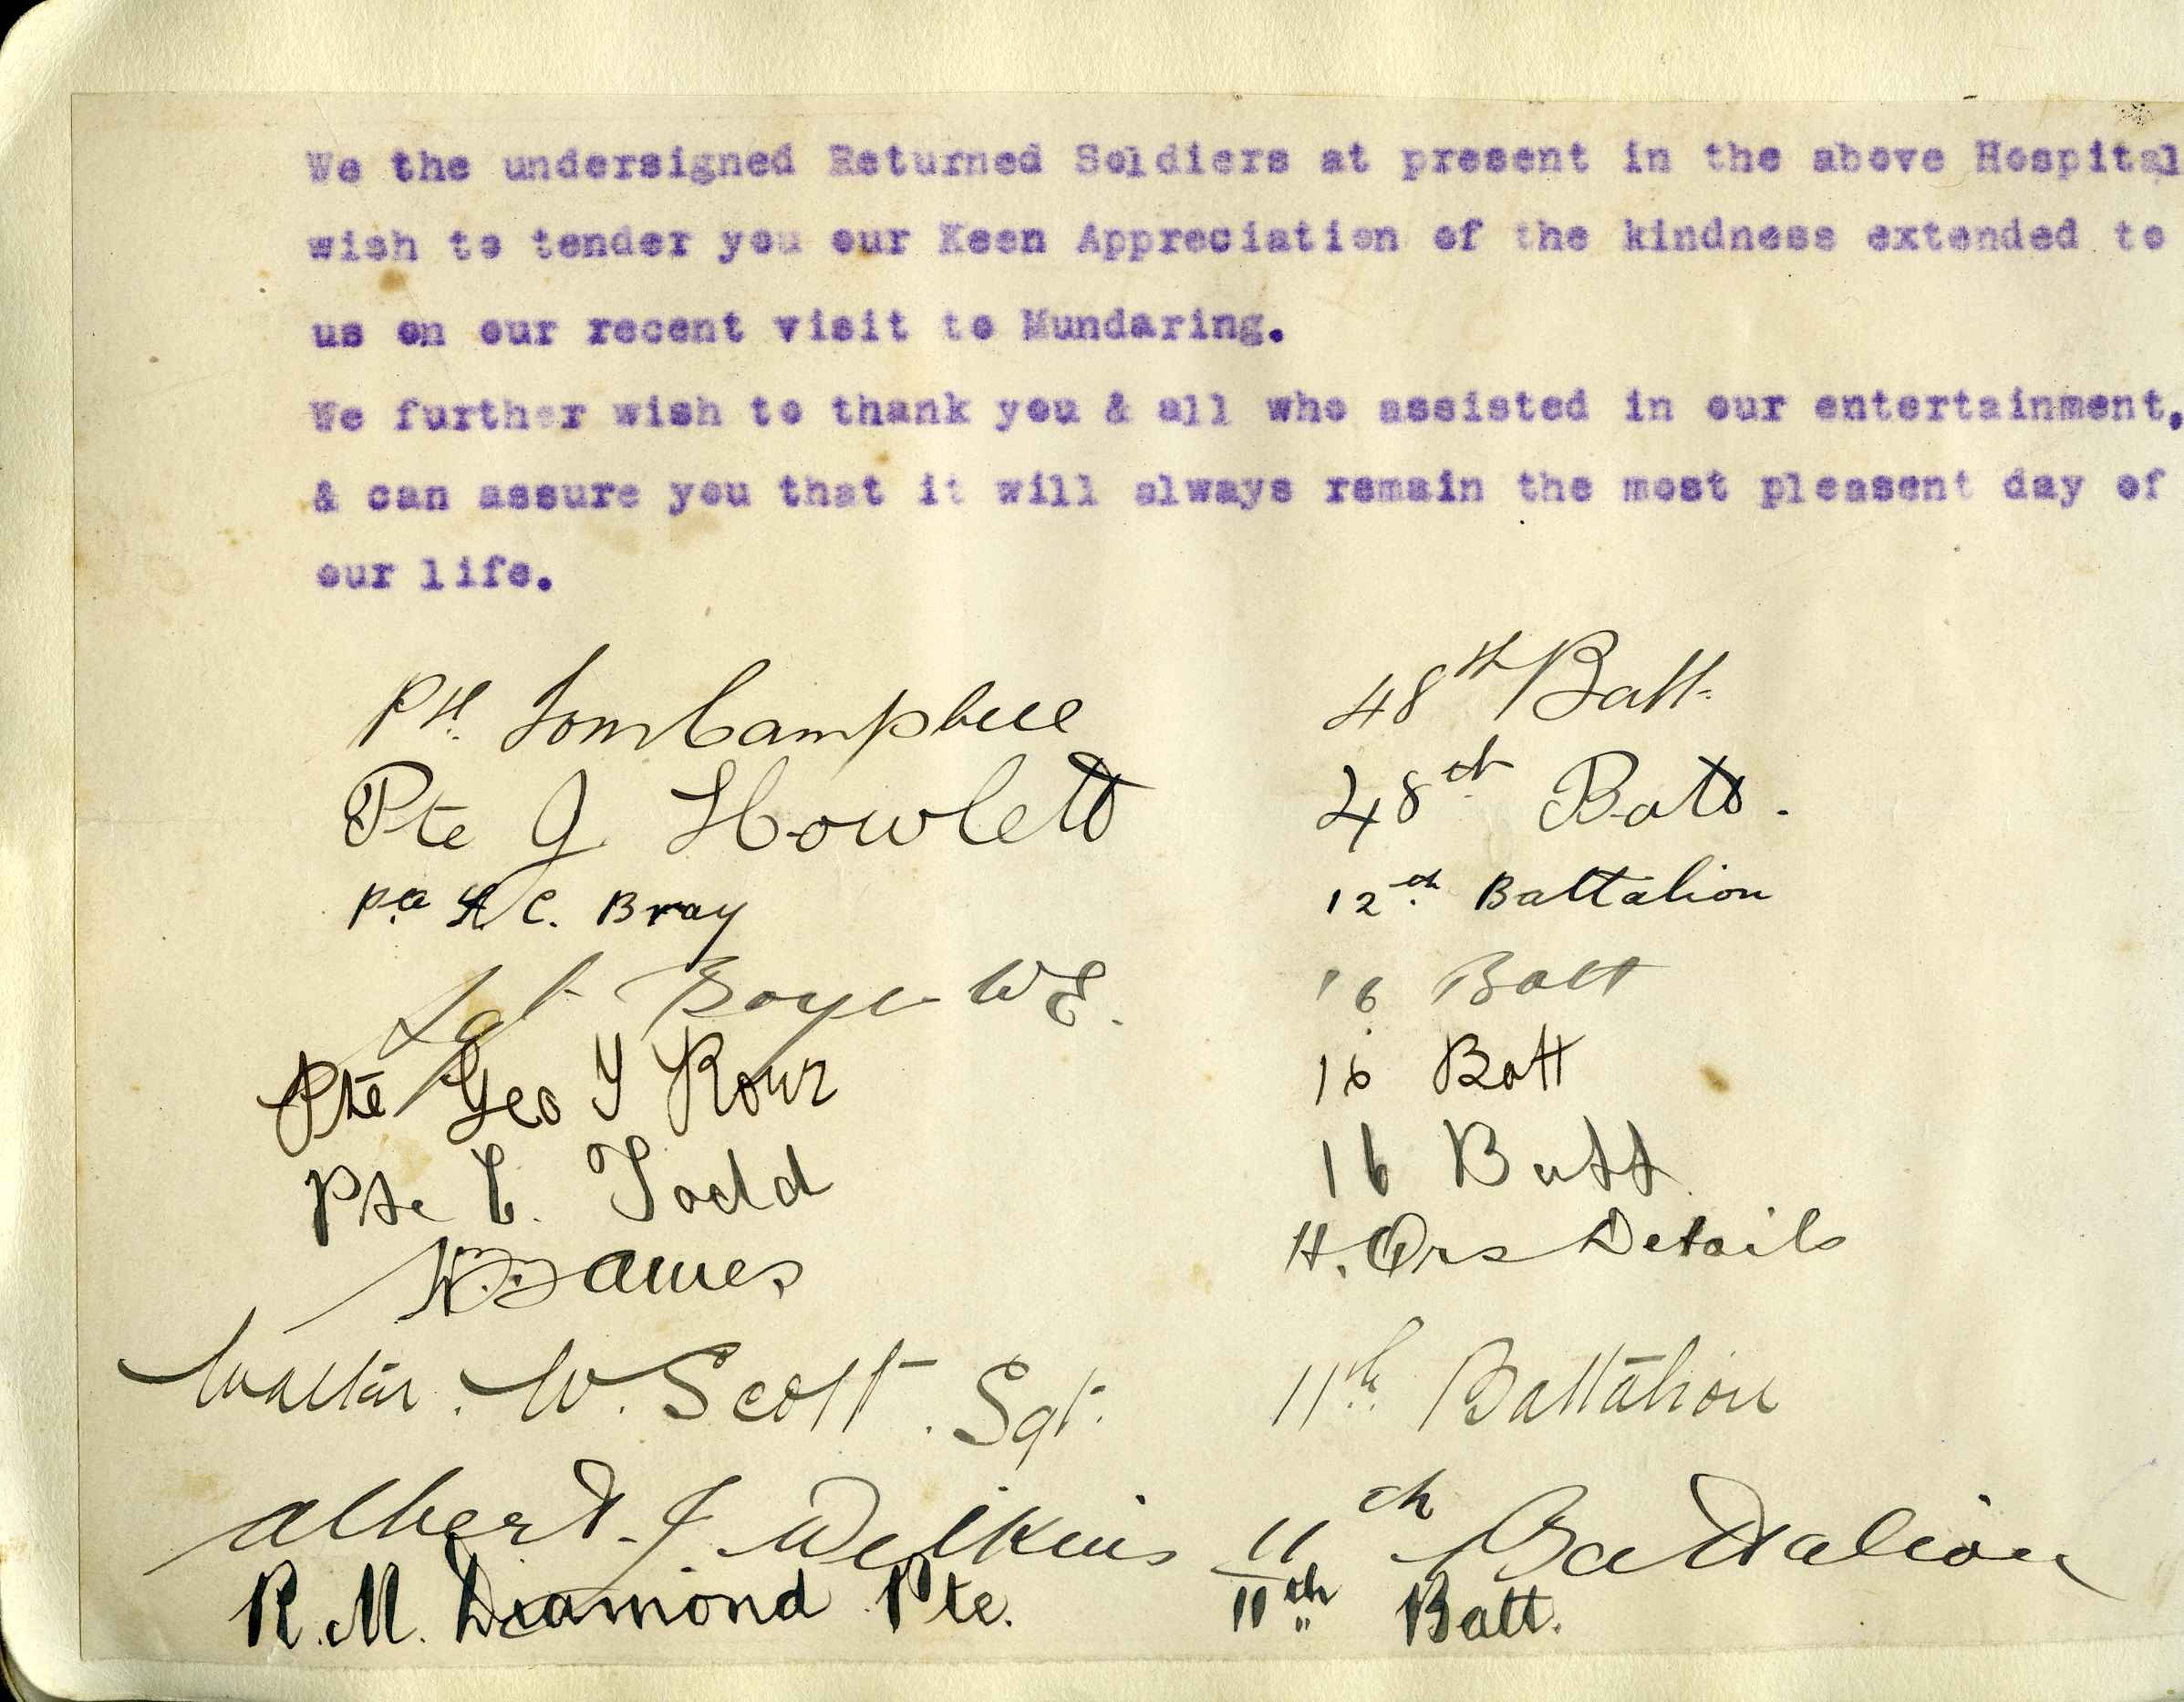 We the undersigned Returned Soldiers at present in the above Hospital
wish to tender you our Keen Appreciation of the kindness extended to
us on our recent visit to Mundaring.
We further wish to thank you & all who assisted in our entertainment,
& can assure you that it will always remain the most pleasent day of
our life.
Pte. Tom Campbell 48th Batt.
Pte J Howlett 48th Batt.
Pte H C. Bray 12th Battalion
Sgt Boyer W E. 16 Batt
Pte Geo Y 16 Batt
Pte E. Todd 16 Batt
Wm James H. Qrs Details
Walter. W. Scott. Sgt. 11th Battalion
Albert J. Wilkins 11th Battalion
R. M. Diamond Pte. 11th Batt.